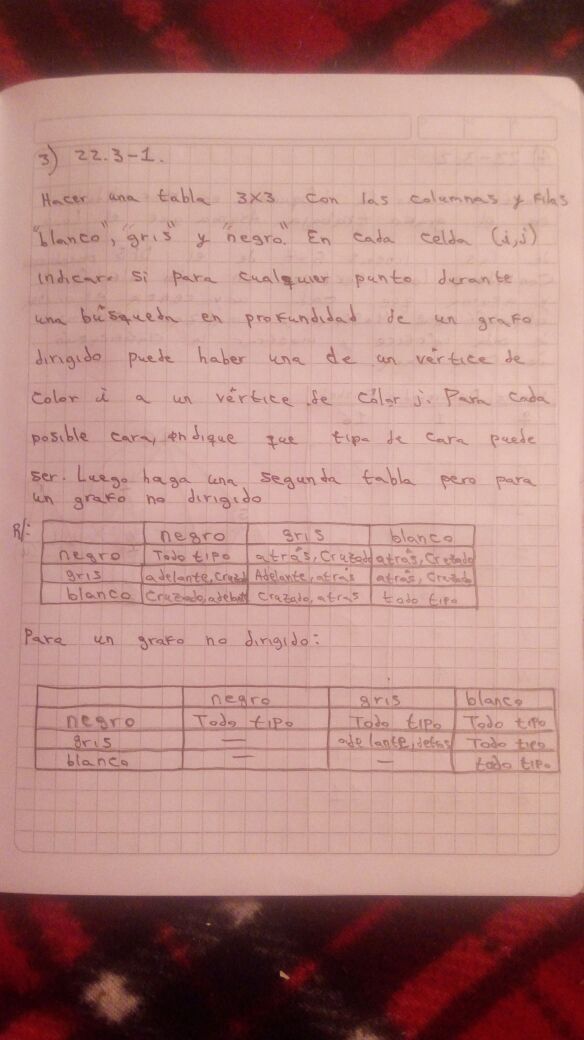 3) 22.3-1.
Hacer una tabla 3x3 con las columnas y filas
"blanco", "gris" y "negro". En cada celda (i,j)
indicar si para cualquier punto durante
una búsqueda en profundidad de un grafo
dirigido puede haber una de un vértice de
color i a un vértice de color j. Para cada
posible cara, indique que tipo de cara puede
ser. Luego haga una segunda tabla pero para
un grafo no dirigido
R/:
negro gris blanco
negro Todo tipo atrás, Cruzado atrás, Cruzado
gris adelante, Cruzad Adelante, atrás atrás, Cruzado
blanco Cruzado, adelant Cruzado, atras todo tipo
Para un grafo no dirigido:
negro gris blanco
negro Todo tipo Todo tipo Todo tipo
gris — adelante, detas Todo tipo
blanco — — todo tipo